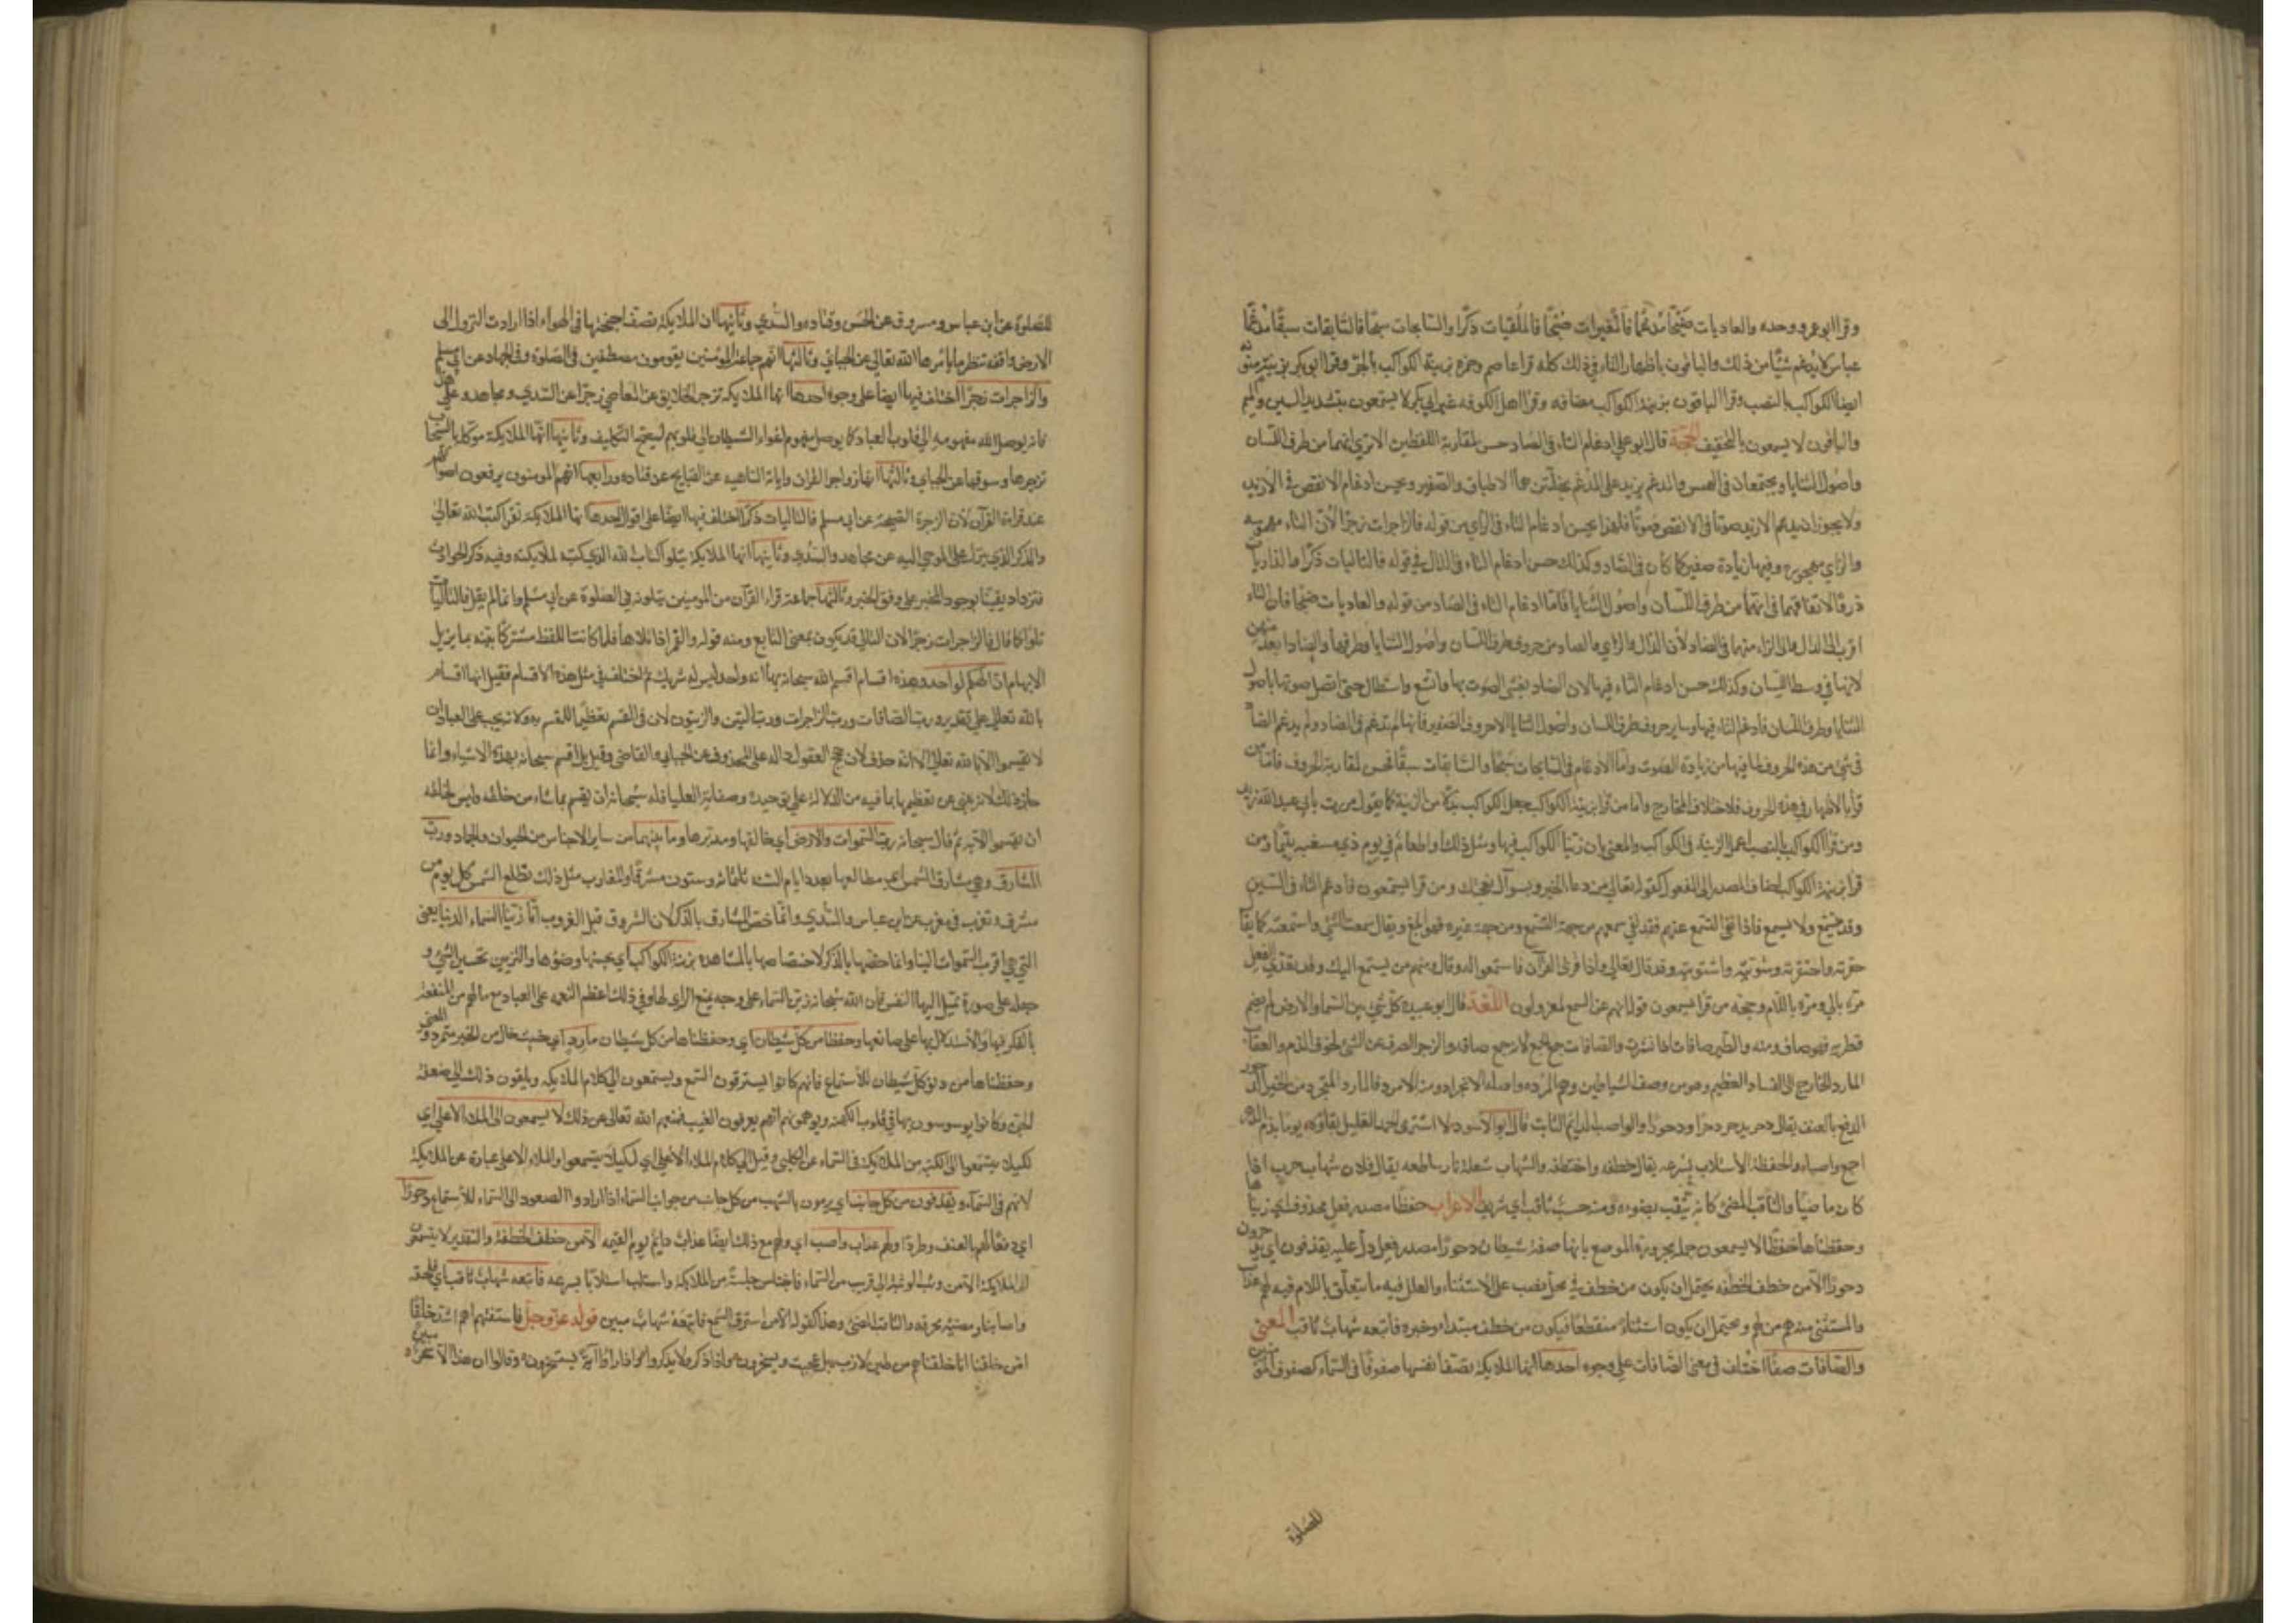 وقرا ابو عمرو وحده والعاديات ضبحا مدغما فالمغيرات صبحا فالملقيات ذكرا والسابحات سبحا فالسابقات سبقا مدغما
عباس لا يدغم شيئا من ذلك والباقون باظهار التاء في ذلك كله قرا عاصم وحمزه بزينة الكواكب بالجر وقرا ابو بكر بزينة منونه
ايضا الكواكب بالنصب وقرا الباقون بزينة الكواكب مضافه وقرا اهل الكوفه غير ابي بكر لا يسمعون بتشديد السين والميم
والباقون لا يسمعون بالتخفيف الحجة قال ابو علي ادغام التاء في الصاد حسن لمقاربة اللفظين الا تري انهما من طرف اللسان
واصول الثنايا ويجتمعان في الهمس والمدغم يزيد على المدغم بخلتين هما الاطباق والصفير ويحسن ادغام الانقص في الازيد
ولا يجوز ان يدغم الازيد صوتا في الانقص صوتا فلهذا يحسن ادغام التاء في الزاي من قوله فالزاجرات زجرا لان التاء مهموسه
والزاي مجهوره وفيها زيادة صفير كما كان في الصاد وكذلك حسن ادغام التاء في الذال في قوله فالتاليات ذكرا والذاريات
ذروا لاتفاقهما في انهما من طرف اللسان واصول الثنايا فاما ادغام التاء في الضاد من قوله والعاديات ضبحا فان التاء
اقرب الى الذال والى الزاء منها في الضاد لان الذال والزاي والصاد من حروف طرف اللسان واصول الثنايا وطرفها والضاد ابعد منهن
لانها في وسط اللسان وكذلك حسن ادغام التاء فيها لان الضاد تفشى الصوت بها واتسع واستطال حتى اتصل صوتها باصول
الثنايا وطرف اللسان فادغم التاء فيها وساير حروف طرف اللسان واصول الثنايا الا حروف الصفير فانها لم تدغم في الضاد ولم يدغم الضاد
في شئ من هذه الحروف لما فيها من زيادة الصوت واما الادغام في السابحات سبحا والسابقات سبقا فحسن لمقاربة الحروف فاما من
قرا بالاظهار في هذه الحروف فلاختلاف المخارج واما من قرا بزينة الكواكب جعل الكواكب بدلا من الزينة كما يقول مررت بابي عبد الله زيد
ومن قرا الكواكب بالنصب اعمل الزينة في الكواكب والمعني بان زينا الكواكب فيها ومثل ذلك او اطعام في يوم ذي مسغبة يتيما ومن
قرا بزينة الكواكب اضاف المصدر الى المفعول كقوله تعالى من دعاء الخير وبسوال نعجتك ومن قرا يسمعون فادغم التاء في السين
وقد يتسمع ولا يسمع فاذا نفى التسمع عنهم فقد نفي سمعهم من جهة التسمع ومن جهة غيره فهو ابلغ ويقال سمعت الشئ واستمعته كما يقال
حقرته واحتقرته وشويته واشتويته وقد قال تعالى واذا قرئ القرآن فاستمعوا له وقال ومنهم من يستمع اليك وقد تعدي الفعل
مرة بالى ومرة باللام وحجة من قرا يسمعون قوله انهم عن السمع لمعزولون اللغة قال ابو عبيده كل شئ بين السماء والارض لم يضم
قطريه فهو صاف ومنه والطير صافات اذا نشرت والصافات جمع الجمع لانه جمع صافه والزجر الصرف عن الشئ لخوف الذم والعقاب
المارد الخارج الى الفساد العظيم وهو من وصف الشياطين وهم المرده واصله الانجراد ومنه الامرد فالمارد المتجرد من الخير الدحور
الدفع بالعنف يقال دحر يدحر دحرا ودحورا والواصب الدايم الثابت قال ابو الاسود لا اشترى الحمد القليل بقاؤه يوما بذم الدهر
اجمع واصبا والخطفة الاستلاب بسرعه يقال خطفه واختطفه والشهاب شعلة نار ساطعه يقال فلان شهاب حرب اذا
كان ماضيا والثاقب المضئ كانه يثقب بضوءه ومنه حسب ثاقب اي شريف الاعراب حفظا مصدر فعل محذوف اي زيناها
وحفظناها حفظا لا يسمعون جملة مجرورة الموضع بانها صفة شيطان دحورا مصدر فعل دل عليه يقذفون اي يدحرون
دحورا الا من خطف الخطفه يحتمل ان يكون من خطف في محل نصب على الاستثناء والعامل فيه ما يتعلق باللام فيه لهم عذاب
والمستثنى منه هم من لهم ويحتمل ان يكون استثناء منقطعا فيكون من خطف مبتداء وخبره فاتبعه شهاب ثاقب المعنى
والصافات صفا اختلف في معنى الصافات على وجوه احدها انها الملايكة تصف انفسها صفوفا في السماء كصفوف المؤمنين
للصلوة
للصلوة عن ابن عباس ومسروق عن الحسن وقتاده والسدي وثانيها ان الملايكة تصف اجنحتها في الهواء اذا ارادت النزول الى
الارض واقفة تنتظر ما يامرها الله تعالى عن الجبائي وثالثها انهم جماعة المؤمنين يقومون مصطفين في الصلوة وفي الجهاد عن ابي مسلم
والزاجرات زجرا اختلف فيها ايضا على وجوه احدها انها الملايكه تزجر الخلايق عن المعاصي زجرا عن السدي ومجاهد وعلى هذا
فانه يوصل الله مفهومه الى قلوب العباد كما يوصل مفهوم اغواء الشيطان الى قلوبهم ليصح التكليف وثانيها انها الملايكة موكلة بالسحاب
تزجرها وتسوقها عن الجبائي وثالثها انها زواجر القران واياته الناهيه عن القبايح عن قتاده ورابعها انهم المومنون يرفعون اصواتهم
عند قراءة القرآن لان الزجرة الصيحة عن ابي مسلم فالتاليات ذكرا اختلف فيها ايضا على اقوال احدها انها الملايكة تقرا كتب الله تعالى
والذكر الذي ينزل على الموحي اليه عن مجاهد والسدي وثانيها انها الملايكة تتلو كتاب الله الذي كتبه لملايكته وفيه ذكر الحوادث
فتزداد يقينا بوجود المخبر على وفق الخبر وثالثها جماعة قراء القرآن من المومنين يتلونه في الصلوة عن ابي مسلم وانما لم يقل فالتاليات
تلوا كما قال فالزاجرات زجرا لان التالي قد يكون بمعنى التابع ومنه قوله والقمر اذا تلاها فلما كانت اللفظ مشتركا بينه بما يزيل
الابهام ان الهكم لواحد وهذه اقسام اقسم الله سبحانه بها انه واحد وليس له شريك ثم اختلف في مثل هذه الاقسام فقيل انها اقسام
بالله تعالى على تقدير ورب الصافات ورب الزاجرات ورب التين والزيتون لان في القسم تعظيما للقسم به ولانه يجب على العباد ان
لا يقسموا الا بالله تعالى الا انه حذف لان حجج العقول داله على المحذوف عن الجبائي والقاضي وقيل بل اقسم سبحانه بهذه الاشياء وانما
جاز ذلك لانه ينبئ عن تعظيمها بما فيه من الدلالة على توحيده وصفاته العليا فله سبحانه ان يقسم بما شاء من خلقه وليس لخلقه
ان يقسموا الا به ثم قال سبحانه رب السموات والارض اي خالقها ومدبرها وما بينهما من ساير الاجناس من الحيوان والجماد ورب
المشارق وهي مشارق الشمس اي مطالعها بعدد ايام السنة ثلثمائة وستون مشرقا والمغارب مثل ذلك تطلع الشمس كل يوم من
مشرق وتغرب في مغرب عن ابن عباس والسدي وانما خص المشارق بالذكر لان الشروق قبل الغروب انا زينا السماء الدنيا يعنى
التي هي اقرب السموات الينا وانما خصها بالذكر لاختصاصها بالمشاهدة بزينة الكواكب اي بحسنها وضوءها والتزيين تحسين الشئ و
جعله على صورة تميل اليها النفس فان الله سبحانه زين السماء على وجه يمتع الرائي لها وفي ذلك اعظم النعمه على العباد مع ما لهم من المنفعة
بالفكر فيها والاستدلال بها على صانعها وحفظا من كل شيطان اي وحفظناها من كل شيطان مارد اي خبيث خال من الخير متمرد والمعنى
وحفظناها من دنو كل شيطان للاستماع فانهم كانوا يسترقون السمع ويستمعون الى كلام الملايكه ويلقون ذلك الى ضعفة
الجن وكانوا يوسوسون بها في قلوب الكهنه ويوهمونهم انهم يعرفون الغيب فمنعهم الله تعالى عن ذلك لا يسمعون الى الملاء الاعلى اي
لكيلا يتسمعوا الى الكتبة من الملايكة في السماء عن الكلبي وقيل الى كلام الملاء الاعلى اي لكيلا يتسمعوا والملاء الاعلى عبارة عن الملايكة
لانهم في السماء ويقذفون من كل جانب اي يرمون بالشهب من كل جانب من جوانب السماء اذا ارادوا الصعود الى السماء للاستماع دحورا
اي دفعا لهم بالعنف وطردا ولهم عذاب واصب اي ولهم مع ذلك ايضا عذاب دايم يوم القيمه الا من خطف الخطفة والتقدير لا يتسمعون
الى الملايكة الا من وثب الوثبة الى قريب من السماء فاختلس خلسة من الملايكة واستلب استلابا بسرعه فاتبعه شهاب ثاقب اي فلحقه
واصابه نار مضيئة محرقه والثاقب المضئ وهذا كقوله الا من استرق السمع فاتبعه شهاب مبين قوله عز وجل فاستفتهم اهم اشد خلقا
ام من خلقنا انا خلقناهم من طين لازب بل عجبت ويسخرون واذا ذكروا لا يذكرون واذا راوا آية يستسخرون وقالوا ان هذا الا سحر مبين